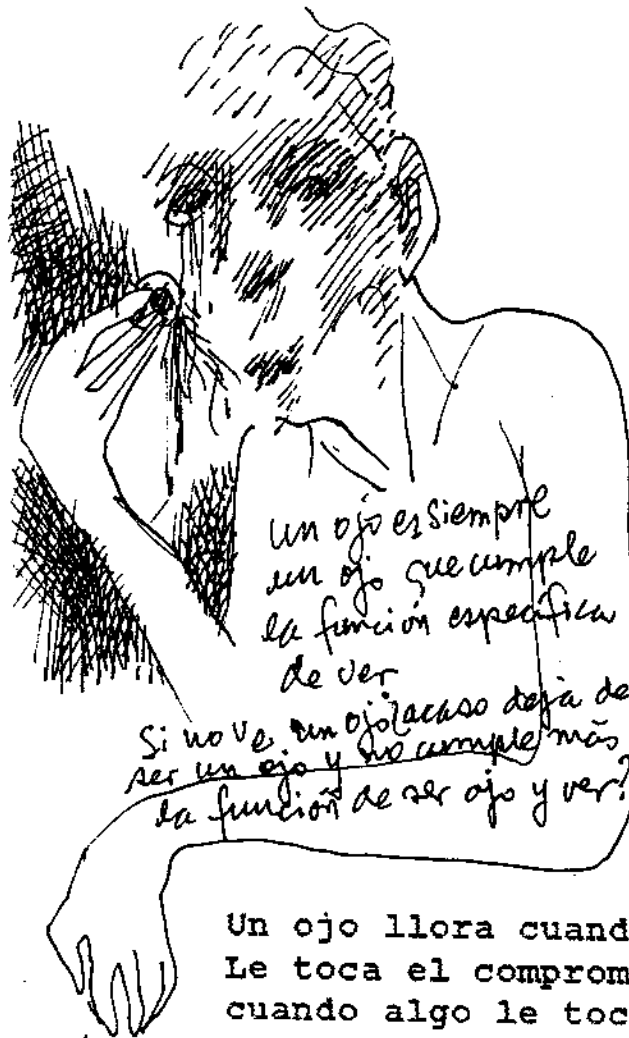 un ojo es siempre
un ojo que cumple
la función específica
de ver
Si no ve un ojo ¿acaso deja de
ser un ojo y no cumple más
la función de ser ojo y ver?
Un ojo llora cuand
Le toca el comprom
cuando algo le toc